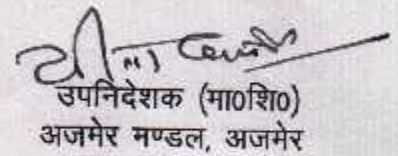 उपनिदेशक (मा0शि0)
अजमेर मण्डल, अजमेर